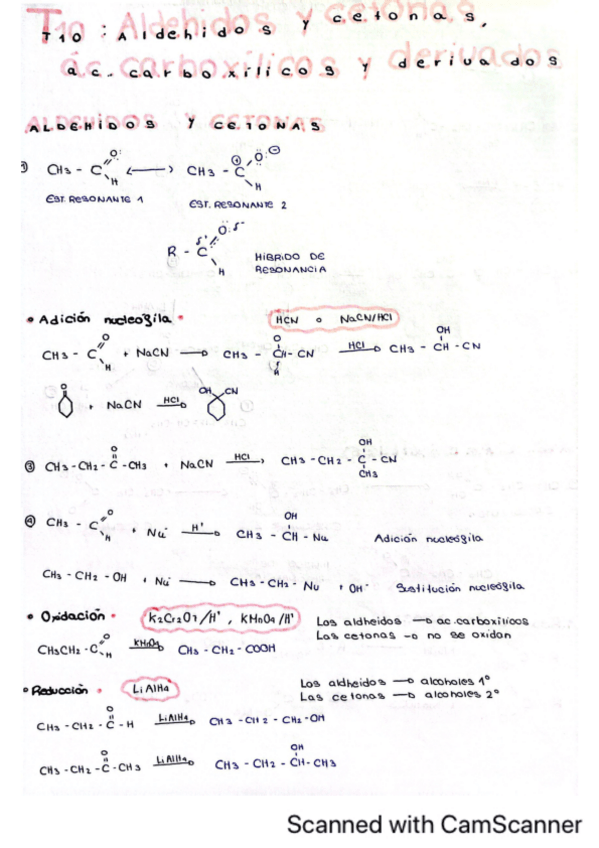 T10: Aldehidos y cetonas,
ác. carboxílicos y derivados
ALDEHIDOS Y CETONAS
CH3 - C O H ⟷ CH3 - C O H
EST. RESONANTE 1 EST. RESONANTE 2
R - C O H HIBRIDO DE
RESONANCIA
• Adición nucleofila • HCN o NaCN/HCl
CH3 - C O H + NaCN → CH3 - CH - CN HCl → CH3 - CH - CN
O OH
+ NaCN HCl → OH CN
③ CH3 - CH2 - C - CH3 + NaCN HCl → CH3 - CH2 - C - CN
O OH CH3
④ CH3 - C O H + Nu⁻ H⁺ → CH3 - CH - Nu Adición nucleofila
OH
CH3 - CH2 - OH + Nu⁻ → CH3 - CH2 - Nu + OH⁻ Sustitución nucleofila
• Oxidación • K2Cr2O7/H⁺, KMnO4/H⁺ Los aldheidos → ac. carboxilicos
Las cetonas → no se oxidan
CH3CH2 - C O H KMnO4 → CH3 - CH2 - COOH
• Reducción • LiAlH4 Los aldheidos → alcoholes 1º
Las cetonas → alcoholes 2º
CH3 - CH2 - C - H LiAlH4 → CH3 - CH2 - CH2 - OH
O
CH3 - CH2 - C - CH3 LiAlH4 → CH3 - CH2 - CH - CH3
O OH
Scanned with CamScanner